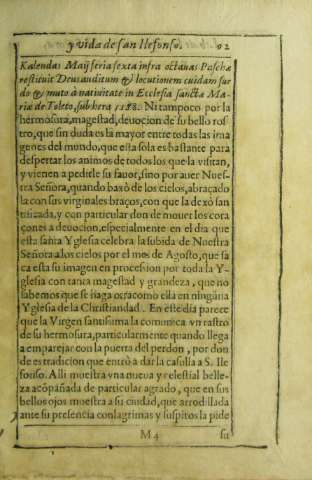 y vida de san Ilefonso. 92
Kalendas Maij feria sexta infra octauas Paschæ
restituit Deus auditum & locutionem cuidam sur
do & muto à natiuitate in Ecclesia sancta Ma-
riæ de Toleto, sub hera 1188. Ni tampoco por la
hermosura, magestad, deuocion de su bello ros
tro, que sin duda es la mayor entre todas las ima
genes del mundo, que esta sola es bastante para
despertar los animos de todos los que la visitan,
y vienen a pedirle su fauor, sino por auer Nues-
tra Señora, quando baxò de los cielos, abraçado
la con sus virginales braços, con que la dexò san
tificada, y con particular don de mouer los cora
çones a deuocion, especialmente en el dia que
esta santa Yglesia celebra la subida de Nuestra
Señora a los cielos por el mes de Agosto, que sa
ca esta su imagen en procession por toda la Y-
glesia con tanta magestad y grandeza, que no
sabemos que se haga otra como ella en ninguna
Yglesia de la Christiandad. En este dia parece
que la Virgen santissima la comunica vn rastro
de su hermosura, particularmente quando llega
a emparejar con la puerta del perdon, por don
de es tradicion que entrò a dar la casulla a S. Ile
fonso. Alli muestra vna nueua y celestial belle-
za acõpañada de particular agrado, que en sus
bellos ojos muestra a su ciudad, que arrodillada
ante su presencia con lagrimas y suspiros la pide
M 4 su